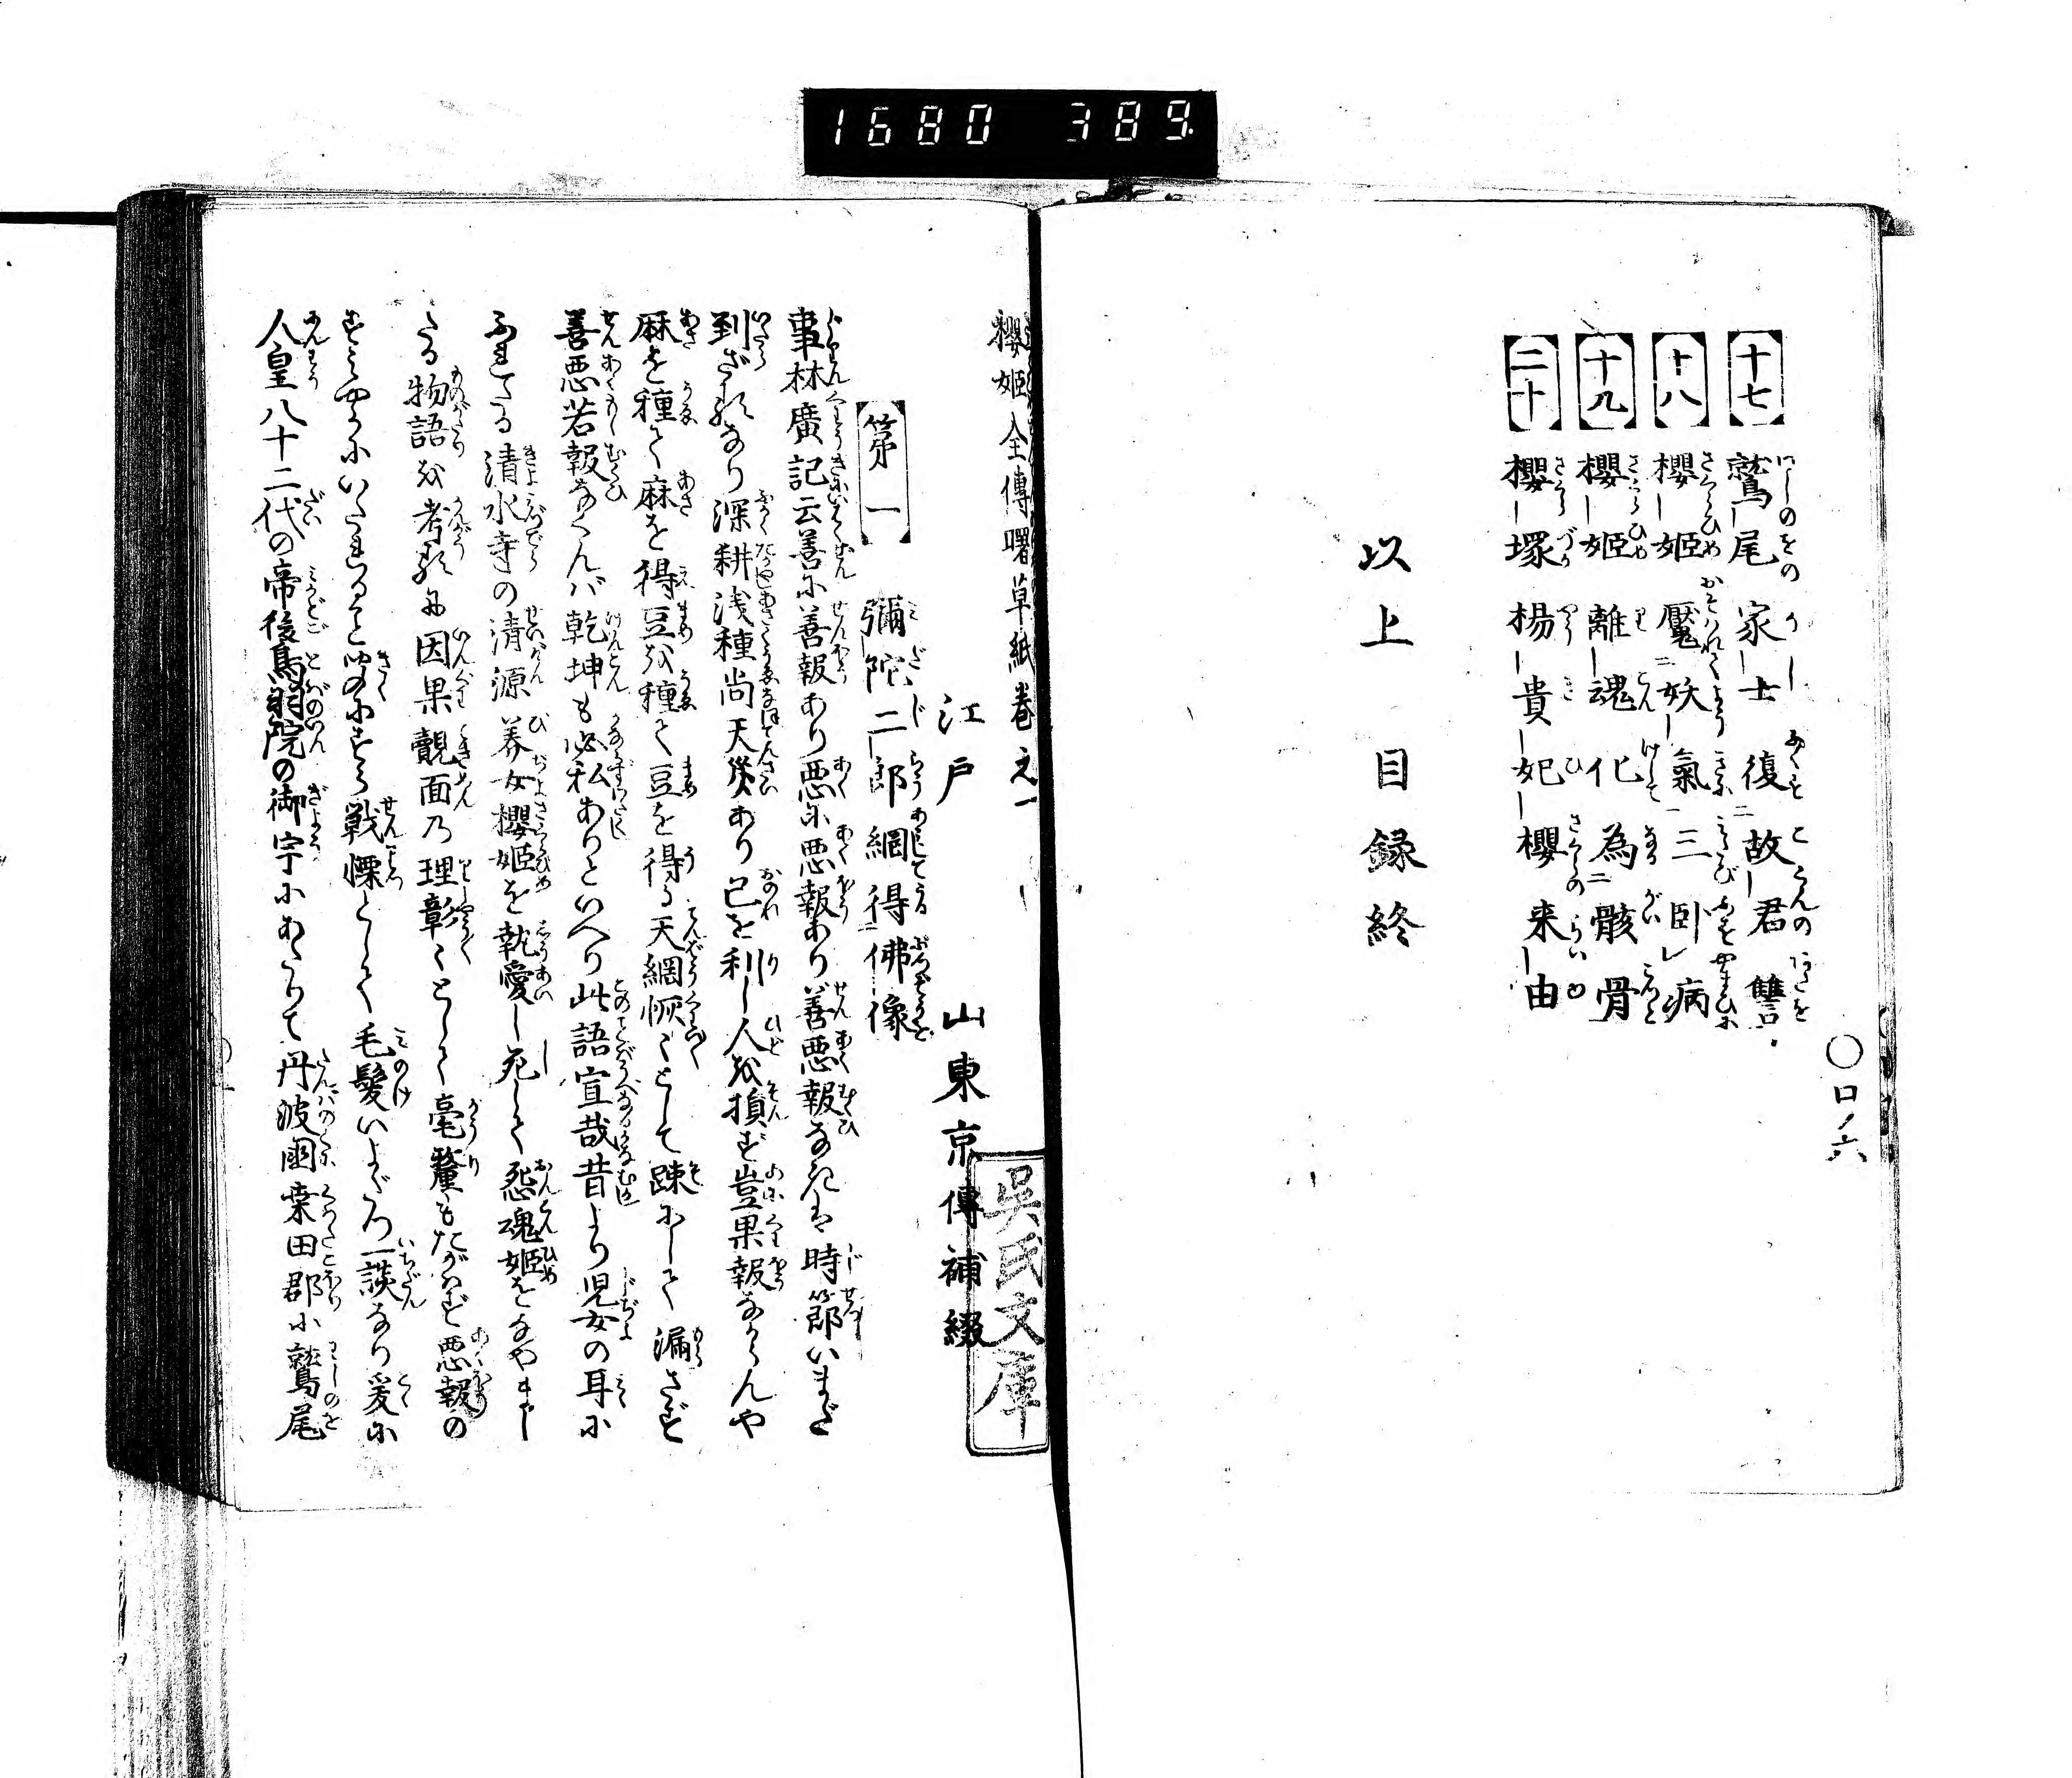 1680 389
【十七】鷲尾家士復故君讐
【十八】櫻姫魘妖氣三臥病
【十九】櫻姫離魂化為骸骨
【二十】櫻塚楊貴妃櫻来由
以上目録終
〇口ノ六
櫻姫全傳曙草紙巻之一
江戸 山東京傳補綴
呉氏文庫
【第一】彌陀二郎網得佛像
事林廣記云善に善報あり悪に悪報あり善悪報なきは時節いまだ
到ざるなり深耕浅種尚天災あり己を利し人を損ず豈果報なからんや
麻を種て麻を得豆を種て豆を得る天網恢〻として踈にして漏さず
善悪若報なくんバ乾坤も必私ありといへり此語宣哉昔より児女の耳に
ふれたる清水寺の清源美女櫻姫を執愛し死して怨魂姫をなやまし
たる物語を考るに因果覿面乃理彰〻として毫釐もたがはず悪報の
すみやかにいたること聞にすら戦慄として毛髪いよだつ一談なり爰に
人皇八十二代の帝後鳥羽院の御宇にあたりて丹波國桒田郡に鷲尾